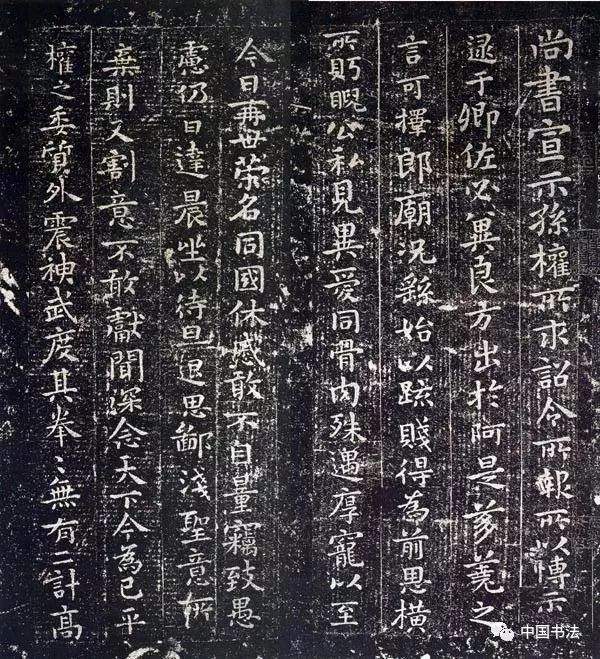 尚書宣示孫權所求詔令所報所以博示
逮于卿佐必冀良方出於阿是芻蕘之
言可擇郎廟況繇始以疏賤得為前恩橫
所眄睨公私見異愛同骨肉殊遇厚寵以至
今日再世榮名同國休慼敢不自量竊致愚
慮仍日達晨坐以待旦退思鄙淺聖意所
棄則又割意不敢獻聞深念天下今為已平
權之委質外震神武度其拳〻無有二計高
中国书法